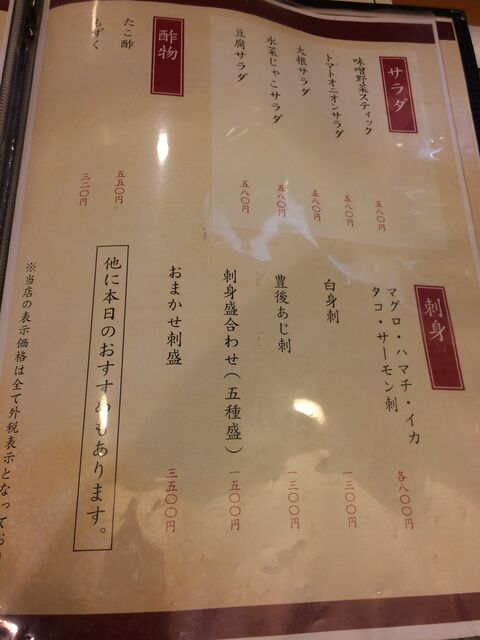 サラダ
味噌野菜スティック 五八〇円
トマトオニオンサラダ 五八〇円
大根サラダ 五八〇円
水菜じゃこサラダ 五八〇円
豆腐サラダ 五八〇円
酢物
たこ酢 五五〇円
もずく 三二〇円
刺身
マグロ・ハマチ・イカ
タコ・サーモン刺 各八〇〇円
白身刺 一三〇〇円
豊後あじ刺 一三〇〇円
刺身盛合わせ(五種盛) 一五〇〇円
おまかせ刺盛 三五〇〇円
他に本日のおすすめもあります。
※当店の表示価格は全て外税表示となってお